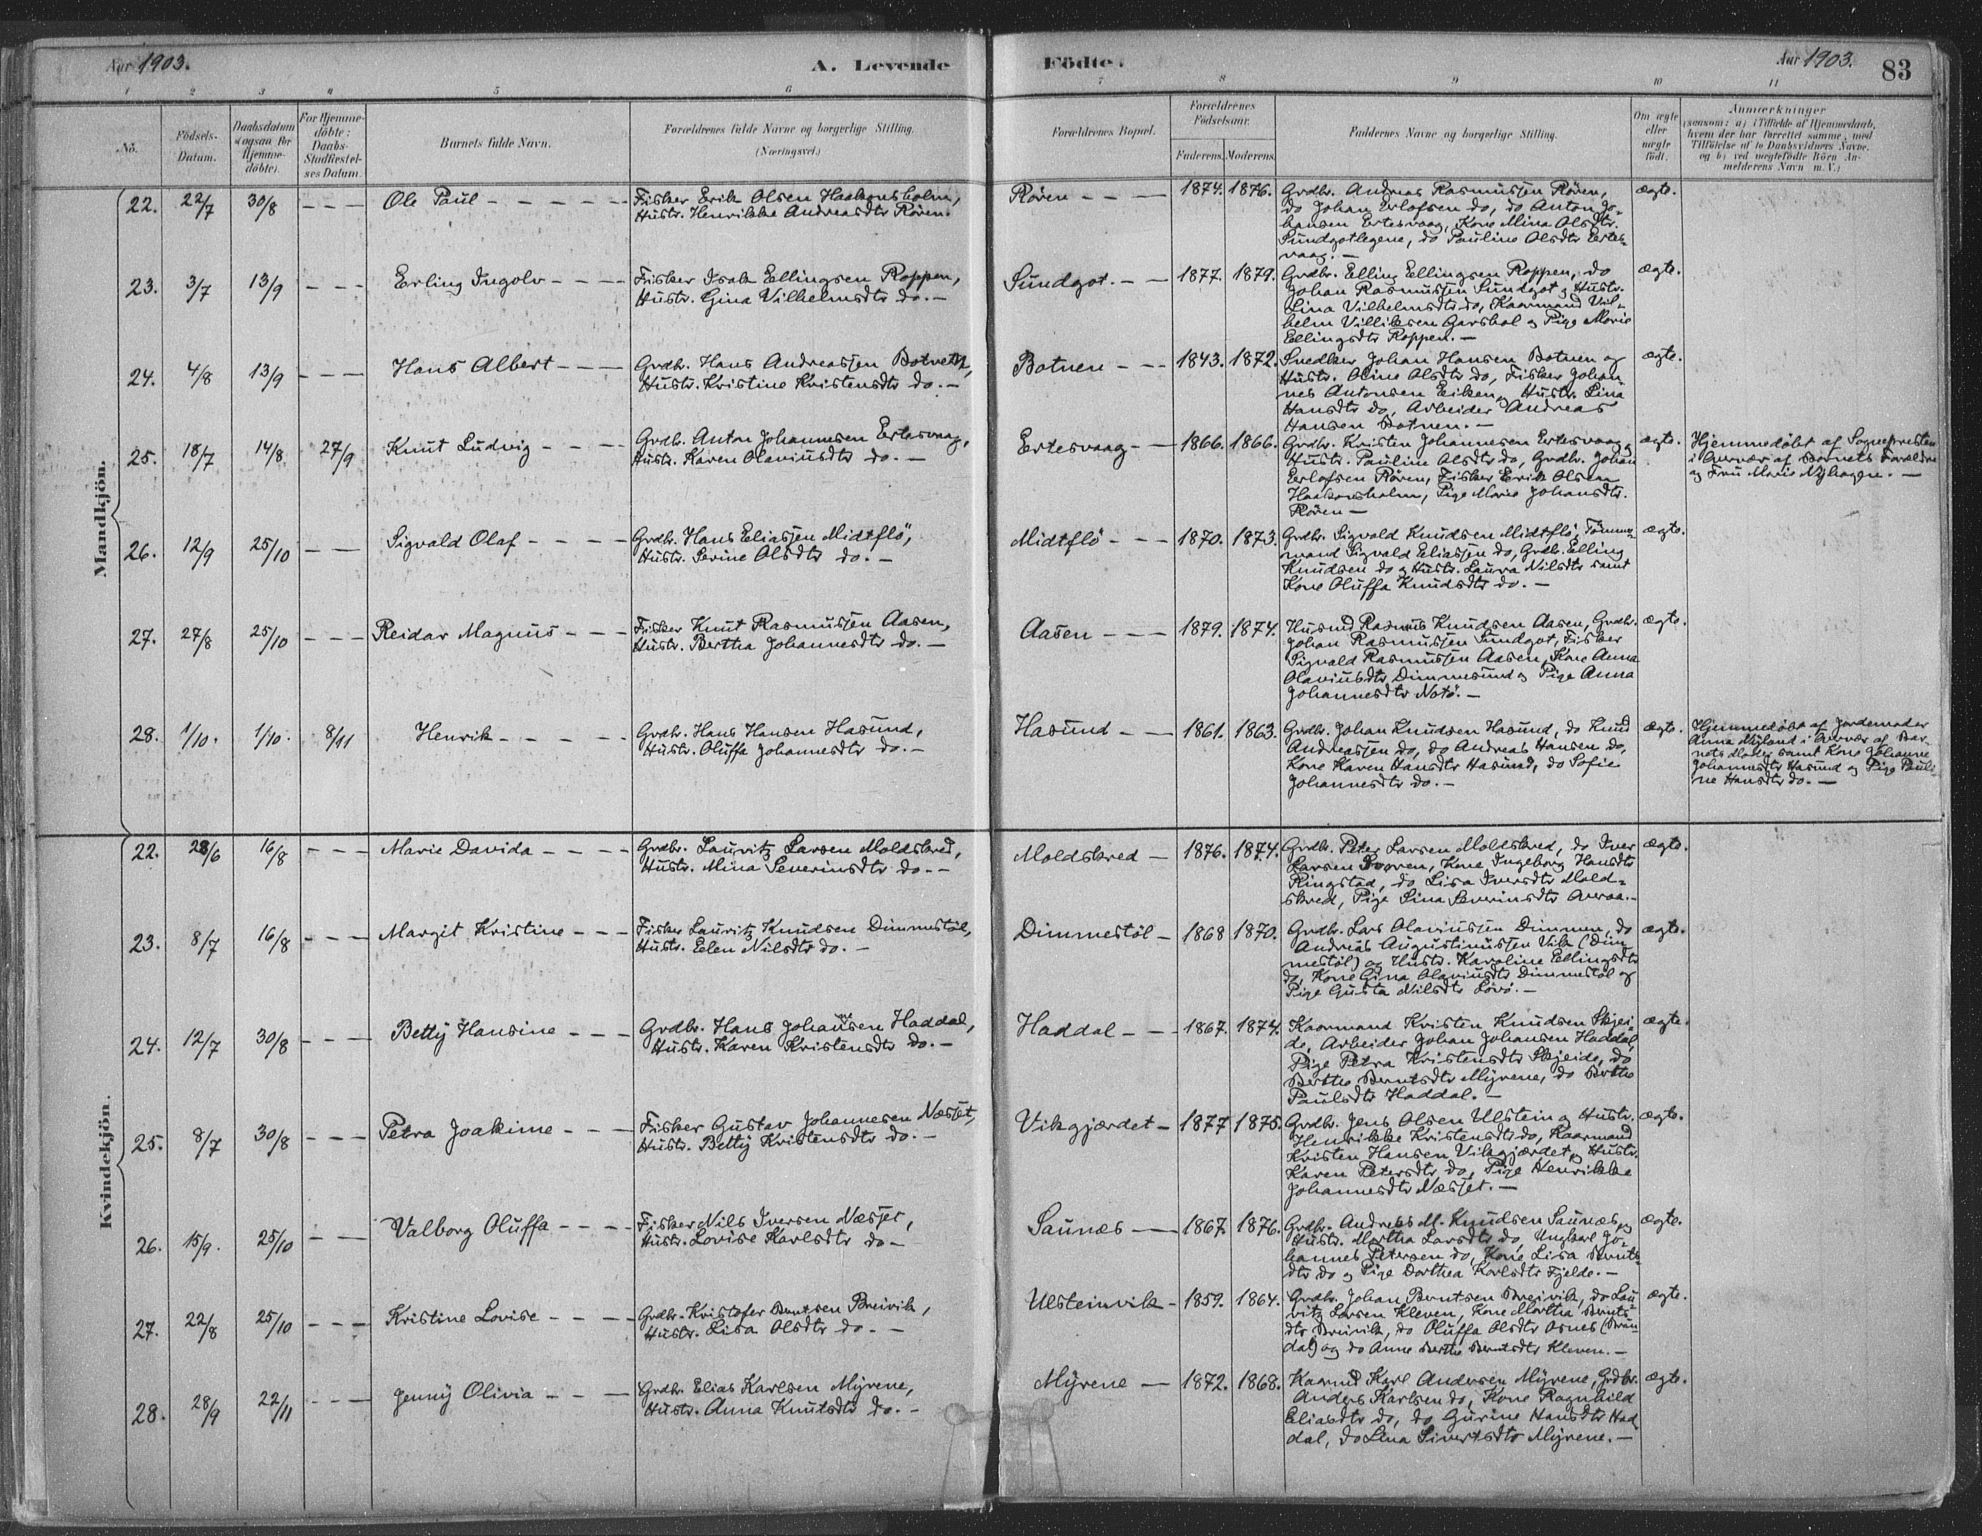 Aar 1903.
A. Levende
Födte.
Aar 1903.
83
1 2 3 4 5 6 7 8 9 10 11
No.
Födsels-Datum.
Daabsdatum
(ogsaa for
Hjemme-
döbte).
For Hjemme-
döbte:
Daabs-
Stadfæstel-
ses Datum.
Barnets fulde Navn.
Forældrenes fulde Navne og borgerlige Stilling.
(Næringsvei.)
Forældrenes Bopæl.
Forældrenes
Födselsaar.
Faderens. Moderens.
Faddernes Navne og borgerlige Stilling.
Om ægte
eller
uægte
födt.
Anmærkninger
(saasom: a) i Tilfælde af Hjemmedaab,
hvem der har forrettet samme, med
Tilföielse af to Daabsvidners Navne,
og b) ved uægtefödte Börn An-
melderens Navn m. V.)
Mandkjön.
22. 22/7 30/8 - - - Ole Paul - - - - -
Fisker Erik Olsen Haakonsholm,
Hustr. Henrikke Andreasdtr Røren.
Røren - - - 1874. 1876.
Grdbr. Andreas Rasmussen Røren,
do Johan Erlofsen do, do Anton Jo-
hansen Ertesvaag, Kone Mina Olsdtr.
Sundgotlegene, do Pauline Olsdtr Ertes-
vaag. -
ægte.
23. 3/7 13/9 - - - Erling Ingolv - - - -
Fisker Isak Ellingsen Roppen,
Hustr. Gina Vilhelmsdtr do. -
Sundgot. - - 1877. 1879.
Grdbr. Elling Ellingsen Roppen, do
Johan Rasmussen Sundgot og Hustr.
Lina Vilhelmsdtr do, Kaarmand Vil-
helm Villiksen Garshol og Pige Marie
Ellingsdtr Roppen. -
ægte.
24. 4/8 13/9 - - - Hans Albert - - -
Grdbr. Hans Andreassen Botnen,
Hustr. Kristine Kristensdtr do. -
Botnen - - - 1843. 1872.
Snedker Johan Hansen Botnen og
Hustr. Oline Olsdtr do, Fisker Johan-
nes Antonsen Eiken, Hustr. Lina
Hansdtr do, Arbeider Andreas
Hansen Botnen. -
ægte.
25. 18/7 14/8 27/9 Knut Ludvig - - - -
Grdbr. Anton Johannesen Ertesvaag,
Hustr. Karen Olaviusdtr do. -
Ertesvaag - - 1866. 1866.
Grdbr. Kristen Johannesen Ertesvaag,
Hustr. Pauline Olsdtr do, Grdbr. Johan
Erlofsen Røren, Fisker Erik Olsen
Haakonsholm, Pige Marie Johansdtr.
Røren -
ægte.
Hjemmedøbt af Sognepresten
i Nærvær af Barnets Forældre
og Frau Marie Myhagen. -
26. 12/9 25/10 - - Sigvald Olaf - - - -
Grdbr. Hans Eliassen Midtflö,
Hustr. Serine Olsdtr do. -
Midtflö - - - 1870. 1873.
Grdbr. Sigvald Knudsen Midtflö, Tømmer-
mand Sigvald Eliassen do, Grdbr. Elling
Knudsen do og Hustr. Laura Nilsdtr samt
Kone Oluffa Knudsdtr do. -
ægte.
27. 27/8 25/10 - - - Reidar Magnus - - -
Fisker Knut Rasmussen Aasen,
Hustr. Bertha Johannesdtr do. -
Aasen - - - 1879. 1874.
Husmd Rasmus Knudsen Aasen, Grdbr.
Johan Rasmussen Sundgot, Fisker
Sigvald Rasmussen Aasen, Kone Anna
Olaviusdtr Dimmesund og Pige Anna
Johannesdtr Notø. -
ægte.
28. 1/10. 1/10. 8/11 Henrik - - - - -
Grdbr. Hans Hansen Hasund,
Hustr. Oluffa Johannesdtr do. -
Hasund - - 1861. 1863.
Grdbr. Johan Knudsen Hasund, do Knud
Andreassen do, do Andreas Hansen do,
Kone Karen Hansdtr Hasund, do Sofie
Johannesdtr do. -
ægte.
Hjemmedøbt af Jordemoder
Anna Myland i Nærvær af Bar-
nets Moder samt Kone Johanne
Johannesdtr Hasund og Pige Pauli-
ne Hansdtr do. -
Kvindekjön.
22. 28/6 16/8 - - - Marie Davida - - - -
Grdbr. Lauritz Larsen Moldskred,
Hustr. Mina Severinsdtr do. -
Moldskred - 1876. 1874.
Grdbr. Peter Larsen Moldskred, do Iver
Larsen Svoren, Kone Ingeborg Hansdtr
Ringstad, do Lisa Iversdtr Mold-
skred, Pige Sina Severinsdtr
ægte.
23. 8/7 16/8 - - - Margit Kristine - - -
Fisker Lauritz Knudsen Dimmestöl,
Hustr. Elen Nilsdtr do. -
Dimmestöl - 1868 1870.
Grdbr. Lars Olaviussen Dimmen, do
Andreas Augustinussen Vik (Dim-
mestöl) og Hustr. Karoline Ellingsdtr
do, Kone Gina Olaviusdtr Dimmestöl og
Pige Gusta Nilsdtr Løvö. -
ægte.
24. 12/7 30/8 - - - Betty Hansine - - -
Grdbr. Hans Johansen Haddal,
Hustr. Karen Kristensdtr do. -
Haddal - - - 1867. 1874.
Kaarmand Kristen Knudsen Skjei-
de, Arbeider Johan Johansen Haddal,
Pige Petra Kristensdtr Skjeide, do
Berthe Berntsdtr Myrene, do Berthe
Paulsdtr Haddal. -
ægte.
25. 8/7 30/8 - - - Petra Joakime - - -
Fisker Gustav Johannesen Næsset,
Hustr. Betty Kristensdtr do. -
Vikgjærdet - 1877 1875.
Grdbr. Jens Olsen Ulstein og Hustr.
Henrikke Kristensdtr do, Kaarmand
Kristen Hansen Vikgjærdet og Hustr.
Karen Petersdtr do, Pige Henrikke
Johannesdtr Næsset. -
ægte.
26. 15/9. 25/10 - - Valborg Oluffa - - - -
Fisker Nils Iversen Næsset,
Hustr. Lovise Karlsdtr do -
Saunæs - - 1867. 1876.
Grdbr. Andreas M. Knudsen Saunæs, og
Hustr. Martha Larsdtr do, Ungkarl Jo-
hannes Petersen do, Kone Lisa Bernts-
dtr do og Pige Dorthea Karlsdtr Fjelde. -
ægte.
27. 22/8 25/10 - - - Kristine Lovise - - - -
Grdbr. Kristofer Berntsen Breivik,
Hustr. Lisa Olsdtr do. -
Ulsteinvik - 1859. 1864.
Grdbr. Johan Berntsen Breivik, do Lau-
ritz Larsen Kleven, Kone Martha Bernts-
dtr Breivik, do Oluffa Olsdtr Osnes (Stran-
dal) og do Anne Berthe Berntsdtr Kleven. -
ægte.
28. 28/9 22/11 - - - Jenny Olivia - - -
Grdbr. Elias Karlsen Myrene,
Hustr. Anna Knutsdtr do. -
Myrene - 1872. 1868.
Kaarmd Karl Andersen Myrene, Grdbr.
Anders Karlsen do, Kone Ragnhild
Eliasdtr do, do Gurine Hansdtr Had-
dal, do Lina Sivertsdtr Myrene. -
ægte.